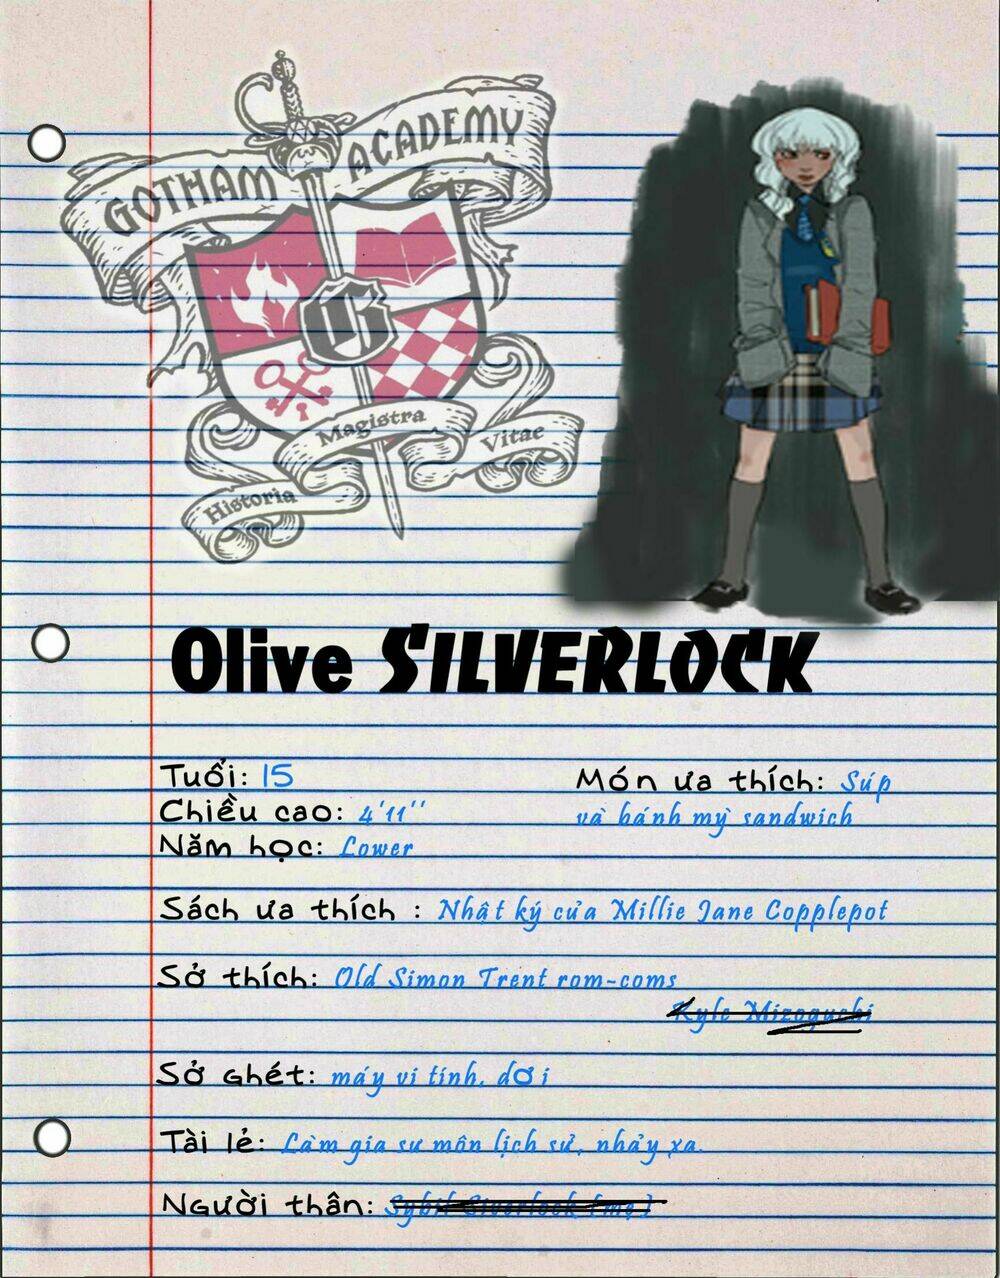 GOTHAM ACADEMY
G
Historia Magistra Vitae
Olive SILVERLOCK
Tuổi: 15
Chiều cao: 4'11''
Năm học: Lower
Món ưa thích: Súp
và bánh mỳ sandwich
Sách ưa thích : Nhật ký của Millie Jane Copplepot
Sở thích: Old Simon Trent rom-coms
Kyle Mizoguchi
Sở Ghét: máy vi tính, dơi
Tài lẻ: Làm gia sư môn lịch sử, nhảy xa.
Người thân: Sybil Siverlock (mẹ)